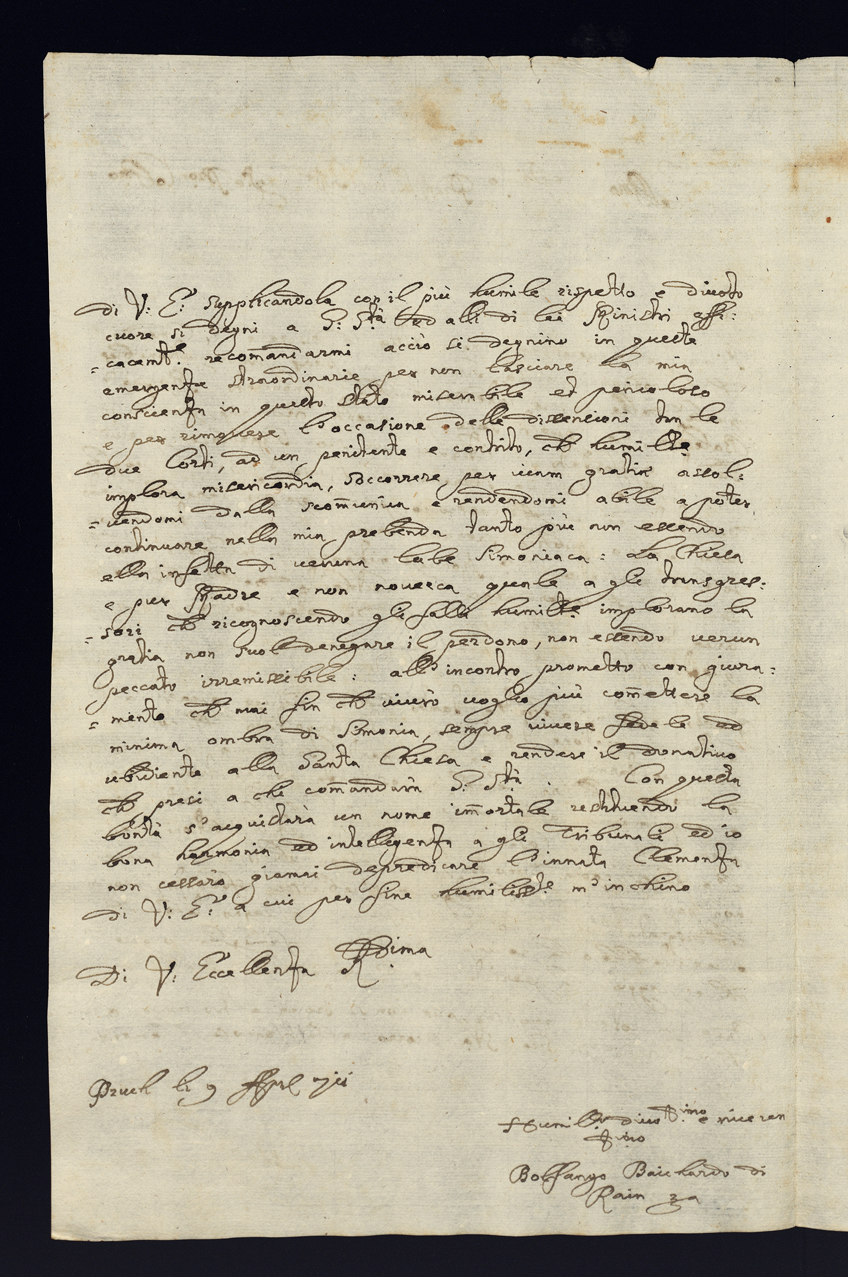 di V: E: supplicandola con il più humile rispetto e divoto
cuore si degni a S: Stà ed alli di lei Ministri effi:
=cacemte recomandarmi acciò si degnino in queste
emergenze straordinarie per non lasciare la mia
conscienza in questo stato miserabile et pericoloso
e per rimovere l'occasione delle dissensioni tra le
due Corti, ad un penitente e contrito, ch humilte
implora misericordia, soccorrere, per veram gratia assol:
=vendomi dalla scomunica e rendendomi abile a poter
continuare nella mia prebenda tanto più non essendo
ella infetta di veruna labe simoniaca: La Chiesa
e pur Madre e non noverca quale a gli transgres:
=sori ch ricognoscendo gli falli humilte implorano la
gratia non suol denegare il perdono, non essendo verun
peccato irremissibile: all'incontro prometto con giura:
=mento ch mai fin ch viverò voglio più comettere la
minima ombra di simonia, sempre vivere fedele ed
ubidiente alla Santa Chiesa e rendere il donativo
ch presi a chi comandarà S: Stà. Con questa
bontà s'acquistarà un nome immortale restituendo la
bona harmonia ed intelligenza a gli Tribunali ed io
non cessarò giamai depredicare l'innata Clemenza
di V: E: a cui per fine humilisste m'inchino
Di V: Eccellenza Rdima
li 9 Aprl 711
Humillo divotimo e
Bolfango di
Rain